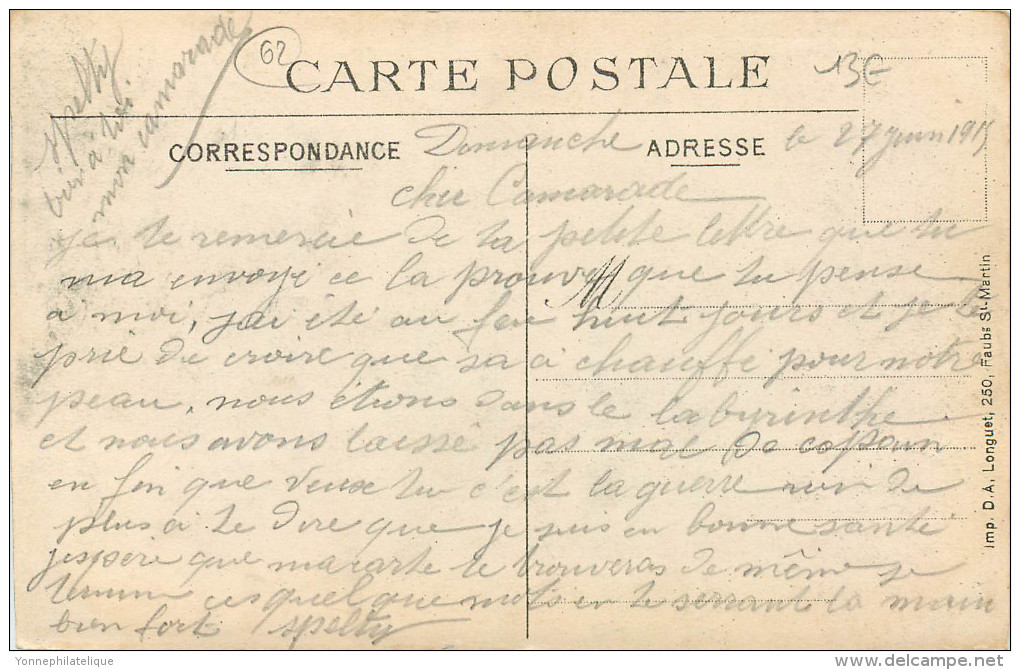 62
13€
spelty
bien à toi
mon camarade
CARTE POSTALE
CORRESPONDANCE
ADRESSE
Dimanche le 27 juin 1915
cher Camarade
je te remercie de ta petite lettre que tu
ma envoye ce la prouve que tu pense
a moi, jai été au feu huit jours et je te
prie de croire que sa a chauffé pour notre
peau, nous étions dans le labyrinthe
et nous avons laissé pas mal de copain
en fin que veux tu c'est la guerre rien de
plus a te dire que je suis en bonne santé
jespere que ma carte te trouveras de même je
termine ces quelque mots en te serrant la main
bien fort spelty
Imp. D.A. Longuet, 250, Faubg St-Martin
Yonnephilatelique
delcampe.net